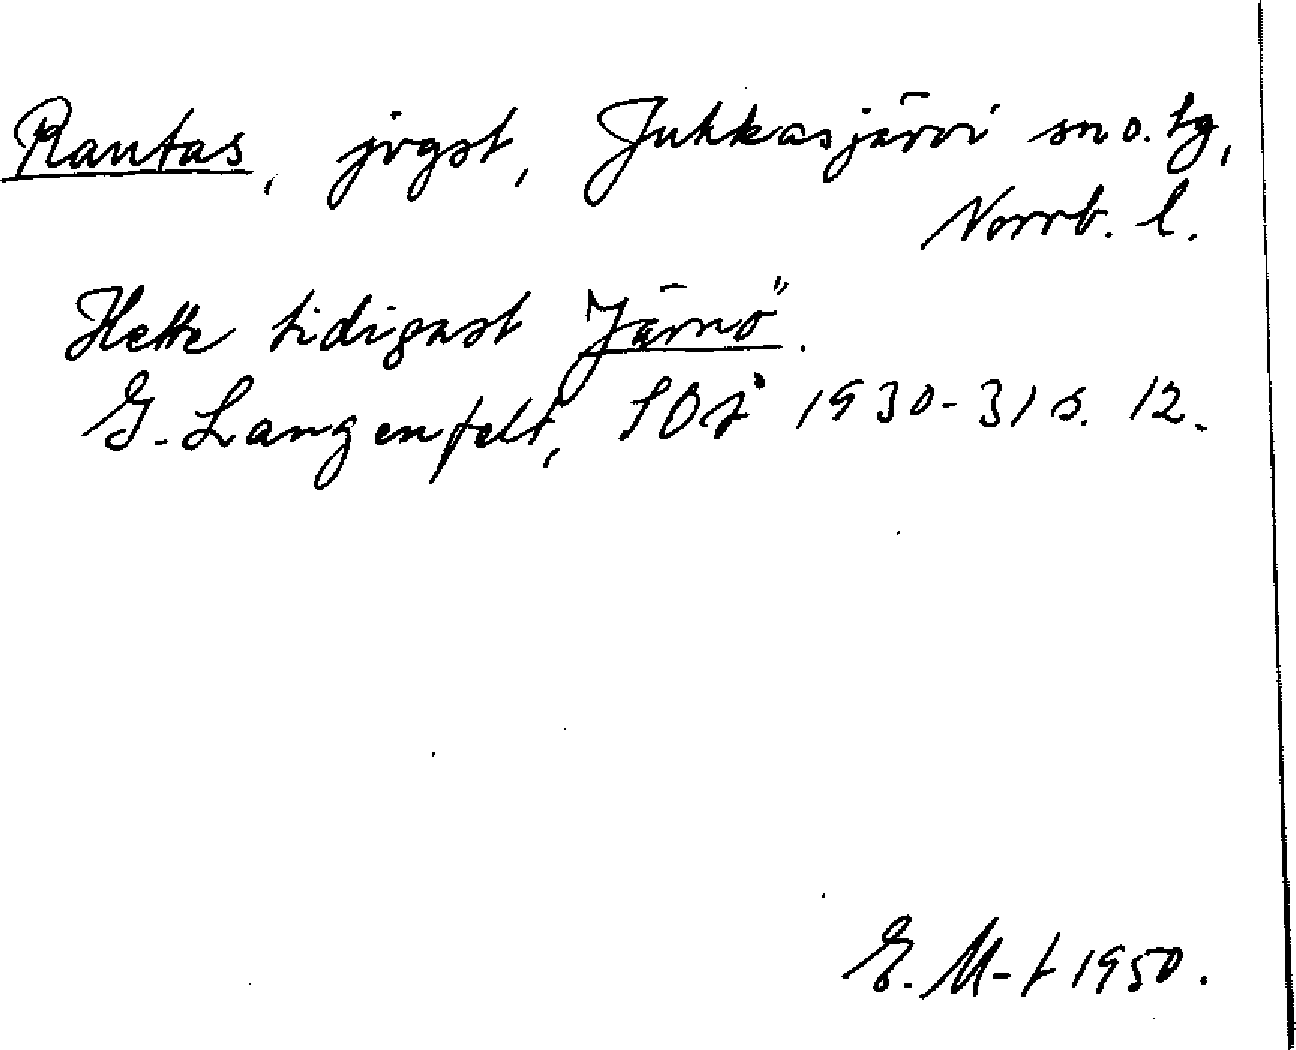 Rautas, jvgst, Jukkasjärvi sn o. tg,
Norrb. l.
Hette tidigast "Järnö".
G. Langenfelt, SOÅ 1930-31 s. 12.
E. M-t 1950.